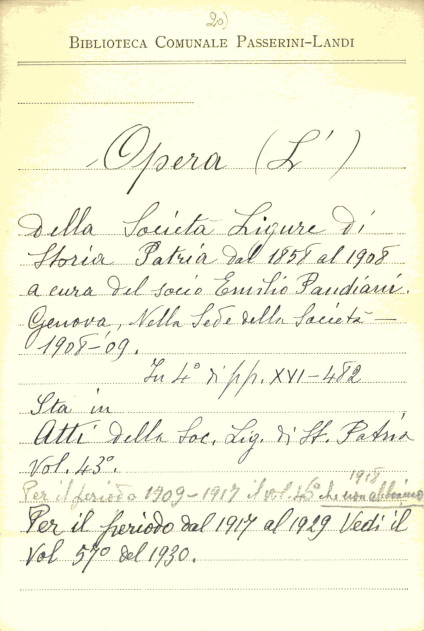 20)
BIBLIOTECA COMUNALE PASSERINI-LANDI
Opera (L')
della Società Ligure di
Storia Patria dal 1858 al 1908
a cura del socio Emilio Pandiani.
Genova, Nella Sede della Società -
1908-'09.
In 4° di pp. XVI-482
Sta in
Atti della Soc. Lig. di St. Patria
Vol. 43°.
1918
Per il periodo 1909-1917 il vol. 46° che non abbiamo
Per il periodo dal 1917 al 1929 Vedi il
Vol 57° del 1930.